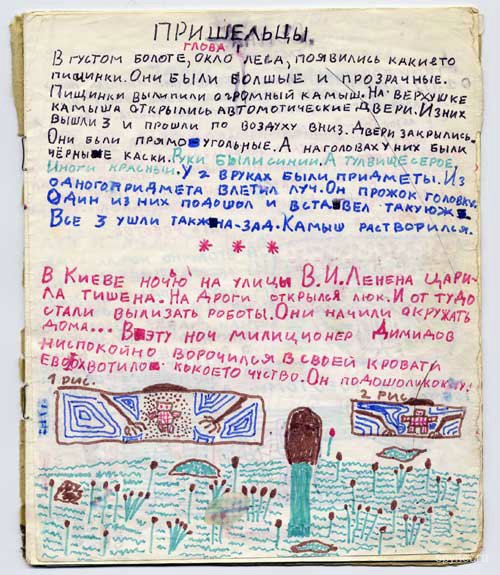 ПРИШЕЛЬЦЫ.
ГЛОВА 1
В ГУСТОМ БОЛОГЕ, ОКЛО ЛЕСА, ПОЯВИЛИСЬ КАКИЕТО
ПИЩИНКИ. ОНИ БЫЛИ БОЛШЫЕ И ПРОЗРАЧНЫЕ.
ПИЩИНКИ ВЫЛИПИЛИ ОГРОМНЫЙ КАМЫШ. НА ВЕРХУШКЕ
КАМЫША ОТКРЫЛИСЬ АВТОМОТИЧЕСКИЕ ДВЕРИ. ИЗ НИХ
ВЫШЛИ 3 И ПРОШЛИ ПО ВОЗДУХУ ВНИЗ. ДВЕРИ ЗАКРЫЛИСЬ.
ОНИ БЫЛИ ПРЯМОУГОЛЬНЫЕ. А НАГОЛОВАХ У НИХ БЫЛИ
ЧЁРНЫЕ КАСКИ. РУКИ БЫЛИ СИНИИ. А ТУЛВИЩЕ СЕРОЕ,
ИНОГИ КРАСНЫИ. У 2 ВРУКАХ БЫЛИ ПРИДМЕТЫ. ИЗ
ОДНОГО ПРИДМЕТА ВЛЕТИЛ ЛУЧ. ОН ПРОЖОК ГОЛОВКУ.
ОДИН ИЗ НИХ ПОДОШОЛ И ВСТАВЕЛ ТАКУЮЖ
ВСЕ 3 УШЛИ ТАКЖНА-ЗАД. КАМЫШ РАСТВОРИЛСЯ.
* * *
В КИЕВЕ НОЧЬЮ НА УЛИЦЫ В. И. ЛЕНЕНА ЦАРИ-
ЛА ТИШЕНА. НА ДРОГИ ОТКРЫЛСЯ ЛЮК. И ОТ ТУДО
СТАЛИ ВЫЛИЗАТЬ РОБОТЫ. ОНИ НАЧИЛИ ОКРУЖАТЬ
ДОМА... В ЭТУ НОЧ МИЛИЦИОНЕР ДИМИДОВ
НИСПОКОЙНО ВОРОЧИЛСЯ В СВОЕЙ КРОВАТИ
ЕВО ХВОТИЛО КОКОЕТО ЧУСТВО. ОН ПОДОШОЛ КОКНУ.
1 РИС.
2 РИС.